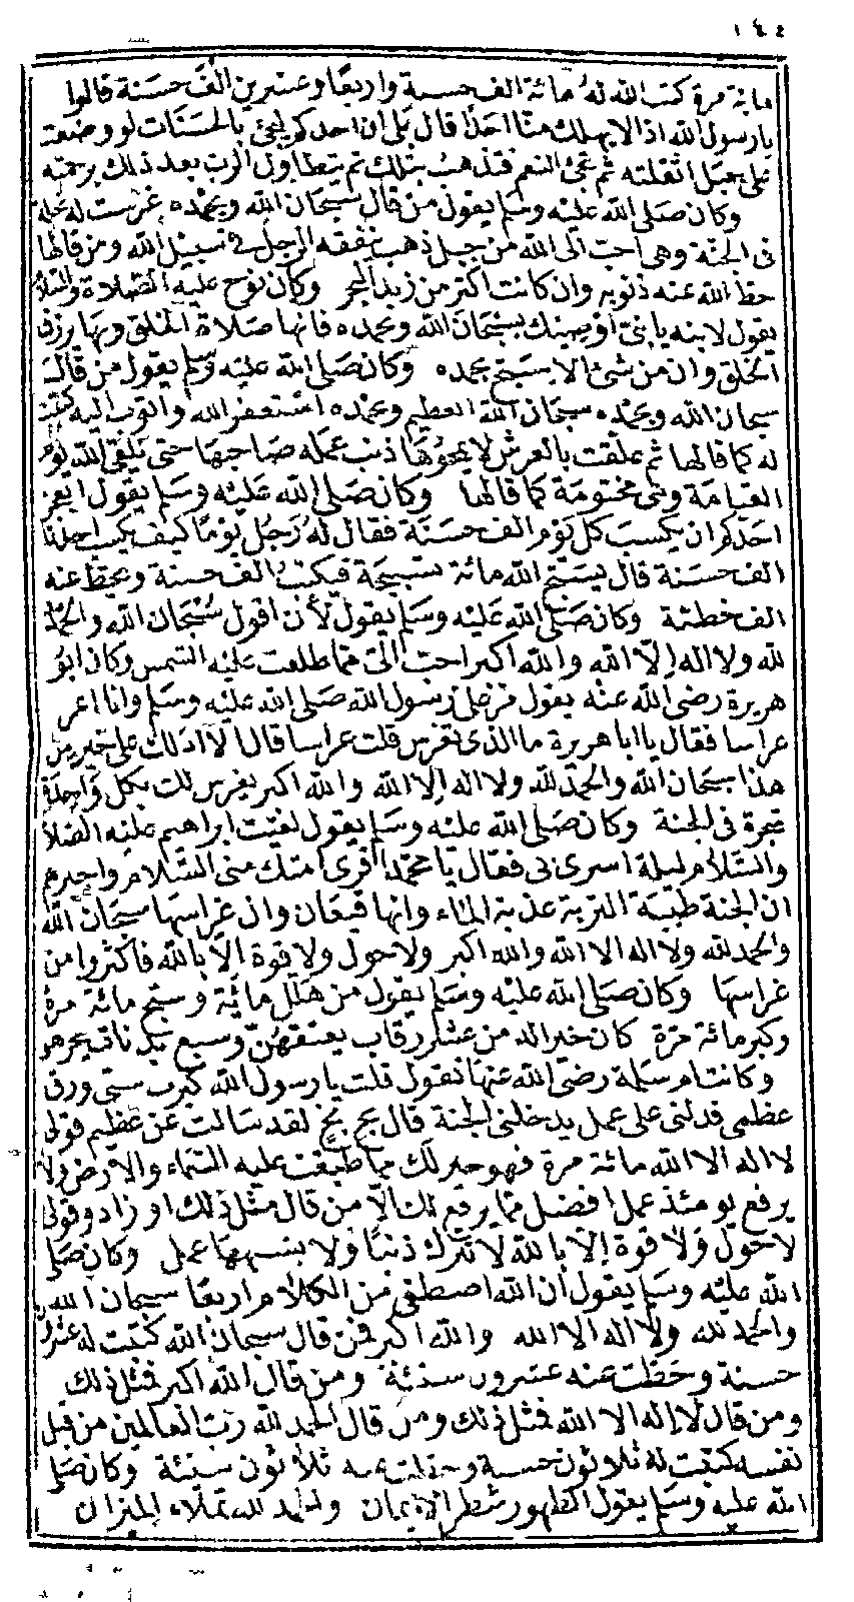 ١٤٤
مائة مرة كتب الله له مائة الف حسنة واربعا وعشرين الف حسنة قالوا
يارسول الله اذا لا يهلك منا احد قال بلى ان احدكم ليجئ بالحسنات لو وضعت
على جبل اثقلته ثم تجئ النعم فتذهب بتلك ثم يتطاول الرب بعد ذلك برحمته
وكان صلى الله عليه وسلم يقول من قال سبحان الله وبحمده غرست له نخلة
فى الجنة وهى احب الى الله من جبل ذهب ينفقه الرجل فى سبيل الله ومن قالها
حط الله عنه ذنوبه وان كانت اكثر من زبد البحر وكان نوح عليه الصلاة والسلام
يقول لابنه يا بنى اوصيك بسبحان الله وبحمده فانها صلاة الخلق وبها يرزق
الخلق وان من شئ الا يسبح بحمده وكان صلى الله عليه وسلم يقول من قال
سبحان الله وبحمده سبحان الله العظيم وبحمده استغفر الله واتوب اليه كتبت
له كما قالها ثم علقت بالعرش لا يمحوها ذنب عمله صاحبها حتى يلقى الله يوم
القيامة وهى مختومة كما قالها وكان صلى الله عليه وسلم يقول ايعجز
احدكم ان يكسب كل يوم الف حسنة فقال له رجل يوما كيف يكسب احدنا
الف حسنة قال يسبح الله مائة تسبيحة فيكتب الف حسنة ويحط عنه
الف خطئة وكان صلى الله عليه وسلم يقول لأن اقول سبحان الله والحمد
لله ولا اله إلا الله والله اكبر احب الى مما طلعت عليه الشمس وكان ابو
هريرة رضى الله عنه يقول مر على رسول الله صلى الله عليه وسلم وانا اغرس
غراسا فقال يا ابا هريرة ما الذى تغرس قلت غراسا قال الا ادلك على خير من
هذا سبحان الله والحمد لله ولا اله إلا الله والله اكبر يغرس لك بكل واحدة
شجرة فى الجنة وكان صلى الله عليه وسلم يقول لقيت ابراهيم عليه الصلاة
والسلام ليلة اسرى بى فقال يا محمد اقرئ امتك منى السلام واخبرهم
ان الجنة طيبة التربة عذبة الماء وانها قيعان وان غراسها سبحان الله
والحمد لله ولا اله الا الله والله اكبر ولا حول ولا قوة الا بالله فاكثروا من
غراسها وكان صلى الله عليه وسلم يقول من هلل مائة وسبح مائة مرة
وكبر مائة مرة كان خير اله من عشر رقاب يعتقهن وسبع بدنات ينحرهن
وكانت ام سلمة رضى الله عنها تقول قلت يا رسول الله كبرت سنى ورق
عظمى فدلنى على عمل يدخلنى الجنة قال بخ بخ لقد سالت عن عظيم قولى
لا اله الا الله مائة مرة فهو خير لك مما طبقت عليه السماء والارض ولا
يرفع يومئذ عمل افضل مما يرفع لك إلا من قال مثل ذلك او زاد وقولى
لاحول ولا قوة إلا بالله لا تترك ذنبا ولا يشبهها عمل وكان صلى
الله عليه وسلم يقول ان الله اصطفى من الكلام اربعا سبحان الله
والحمد لله ولا اله الا الله والله اكبر فمن قال سبحان الله كتبت له عشرون
حسنة وحطت عنه عشرون سيئة ومن قال الله اكبر فمثل ذلك
ومن قال لا إله الا الله فمثل ذلك ومن قال الحمد لله رب العالمين من قبل
نفسه كتبت له ثلاثون حسنة وحطت عنه ثلاثون سيئة وكان صلى
الله عليه وسلم يقول الطهور شطر الإيمان والحمد لله تملاء الميزان